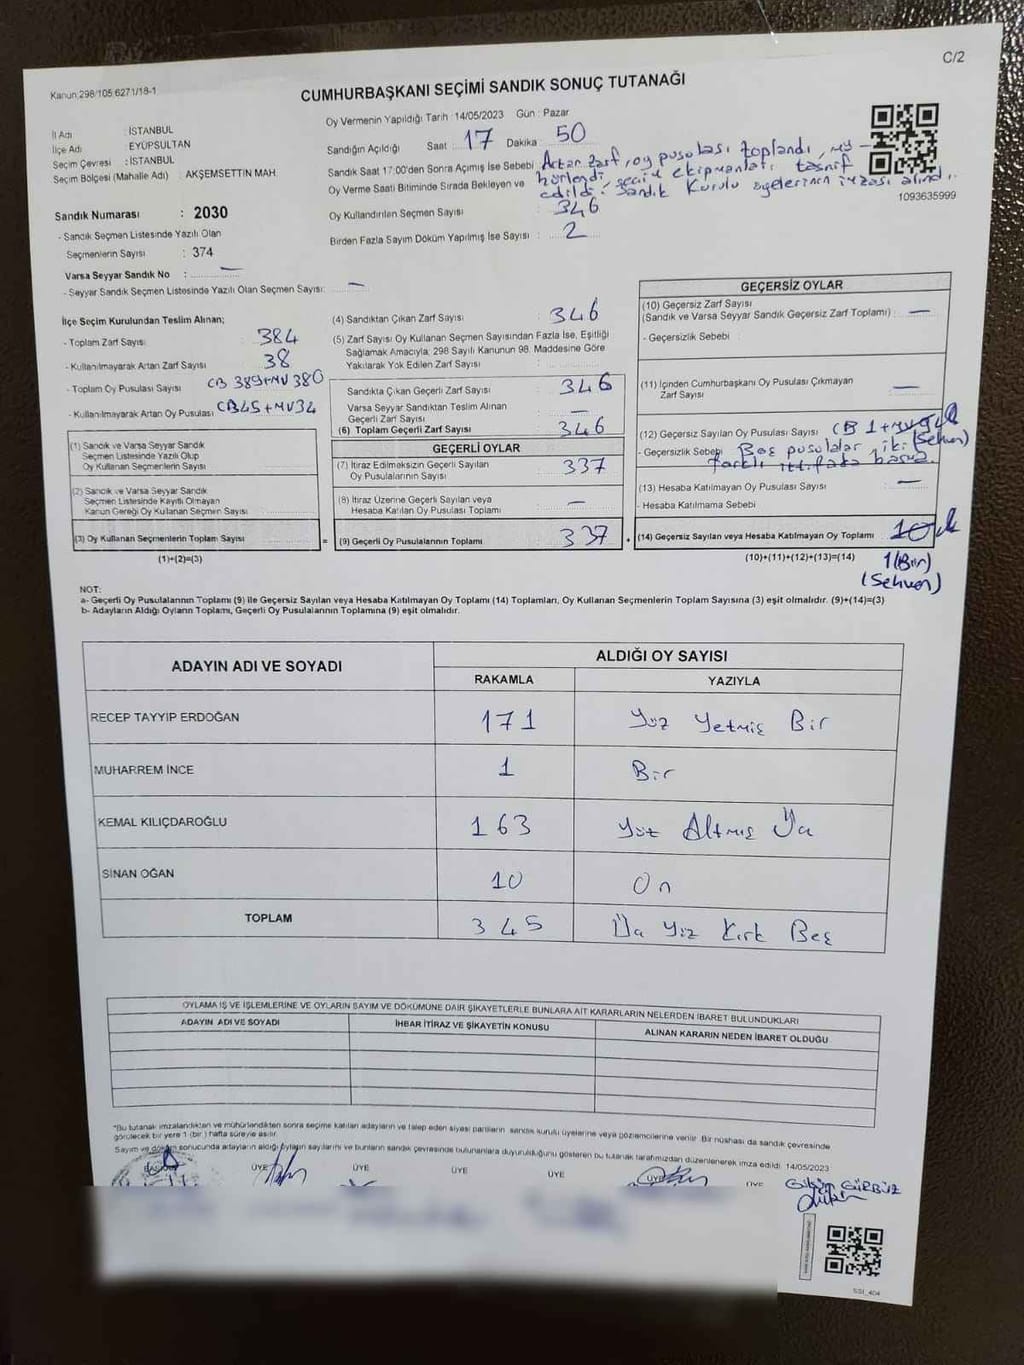 C/2
Kanun,298/105 6271/18-1
CUMHURBAŞKANI SEÇİMİ SANDIK SONUÇ TUTANAĞI
İl Adı : İSTANBUL
İlçe Adı : EYÜPSULTAN
Seçim Çevresi : İSTANBUL
Seçim Bölgesi (Mahalle Adı) : AKŞEMSETTİN MAH.
Oy Vermenin Yapıldığı Tarih : 14/05/2023 Gün : Pazar
Sandığın Açıldığı Saat 17 Dakika 50
Sandık Saat 17:00'den Sonra Açımış İse Sebebi : Artan zarf, oy pusulası toplandı, mü-
hürlendi, seçim ekipmanları tasnif
edildi. Sandık Kurulu üyelerinin imzası alındı.
Oy Verme Saati Bitiminde Sırada Bekleyen ve
Oy Kullandırılan Seçmen Sayısı : 346
Birden Fazla Sayım Döküm Yapılmış İse Sayısı : 2
1093635999
Sandık Numarası : 2030
- Sandık Seçmen Listesinde Yazılı Olan
Seçmenlerin Sayısı : 374
Varsa Seyyar Sandık No : —
- Seyyar Sandık Seçmen Listesinde Yazılı Olan Seçmen Sayısı: —
İlçe Seçim Kurulundan Teslim Alınan;
- Toplam Zarf Sayısı : 384
- Kullanılmayarak Artan Zarf Sayısı : 38
- Toplam Oy Pusulası Sayısı : CB 389+MV 380
- Kullanılmayarak Artan Oy Pusulası : CB45+MV34
(1) Sandık ve Varsa Seyyar Sandık
Seçmen Listesinde Yazılı Olup
Oy Kullanan Seçmenlerin Sayısı
(2) Sandık ve Varsa Seyyar Sandık
Seçmen Listesinde Kayıtlı Olmayan
Kanun Gereği Oy Kullanan Seçmen Sayısı
(3) Oy Kullanan Seçmenlerin Toplam Sayısı
(1)+(2)=(3)
(4) Sandıktan Çıkan Zarf Sayısı : 346
(5) Zarf Sayısı Oy Kullanan Seçmen Sayısından Fazla İse, Eşitliği
Sağlamak Amacıyla, 298 Sayılı Kanunun 98. Maddesine Göre
Yakılarak Yok Edilen Zarf Sayısı :
Sandıkta Çıkan Geçerli Zarf Sayısı : 346
Varsa Seyyar Sandıktan Teslim Alınan
Geçerli Zarf Sayısı : —
(6) Toplam Geçerli Zarf Sayısı : 346
GEÇERLİ OYLAR
(7) İtiraz Edilmeksizin Geçerli Sayılan
Oy Pusulalarının Sayısı : 337
(8) İtiraz Üzerine Geçerli Sayılan veya
Hesaba Katılan Oy Pusulası Toplamı : —
= (9) Geçerli Oy Pusulalarının Toplamı : 337
GEÇERSİZ OYLAR
(10) Geçersiz Zarf Sayısı
(Sandık ve Varsa Seyyar Sandık Geçersiz Zarf Toplamı) : —
- Geçersizlik Sebebi :
(11) İçinden Cumhurbaşkanı Oy Pusulası Çıkmayan
Zarf Sayısı : —
(12) Geçersiz Sayılan Oy Pusulası Sayısı : CB 1+MV
- Geçersizlik Sebebi : Boş pusulalar iki (Sehven)
farklı ittifaka basma.
(13) Hesaba Katılmayan Oy Pusulası Sayısı : —
- Hesaba Katılmama Sebebi :
(14) Geçersiz Sayılan veya Hesaba Katılmayan Oy Toplamı : 10
(10)+(11)+(12)+(13)=(14)
1(Bir)
(Sehven)
NOT:
a- Geçerli Oy Pusulalarının Toplamı (9) ile Geçersiz Sayılan veya Hesaba Katılmayan Oy Toplamı (14) Toplamları, Oy Kullanan Seçmenlerin Toplam Sayısına (3) eşit olmalıdır. (9)+(14)=(3)
b- Adayların Aldığı Oyların Toplamı, Geçerli Oy Pusulalarının Toplamına (9) eşit olmalıdır.
ADAYIN ADI VE SOYADI
ALDIĞI OY SAYISI
RAKAMLA YAZIYLA
RECEP TAYYIP ERDOĞAN 171 Yüz Yetmiş Bir
MUHARREM İNCE 1 Bir
KEMAL KILIÇDAROĞLU 163 Yüz Altmış Üç
SİNAN OĞAN 10 On
TOPLAM 345 Üç Yüz Kırk Beş
OYLAMA İŞ VE İŞLEMLERİNE VE OYLARIN SAYIM VE DÖKÜMÜNE DAİR ŞİKAYETLERLE BUNLARA AİT KARARLARIN NELERDEN İBARET BULUNDUKLARI
ADAYIN ADI VE SOYADI İHBAR İTİRAZ VE ŞİKAYETİN KONUSU ALINAN KARARIN NEDEN İBARET OLDUĞU
*Bu tutanak imzalandıktan ve mühürlendikten sonra seçime katılan adayların ve talep eden siyasi partilerin sandık kurulu üyelerine veya gözlemcilerine verilir. Bir nüshası da sandık çevresinde
görülecek bir yere 1 (bir ) hafta süreyle asılır.
Sayım ve döküm sonucunda adayların aldığı oyların sayılarını ve bunların sandık çevresinde bulunanlara duyurulduğunu gösteren bu tutanak tarafımızdan düzenlenerek imza edildi. 14/05/2023
BAŞKAN ÜYE ÜYE ÜYE ÜYE ÜYE ÜYE
GÜRBÜZ
SSI_404